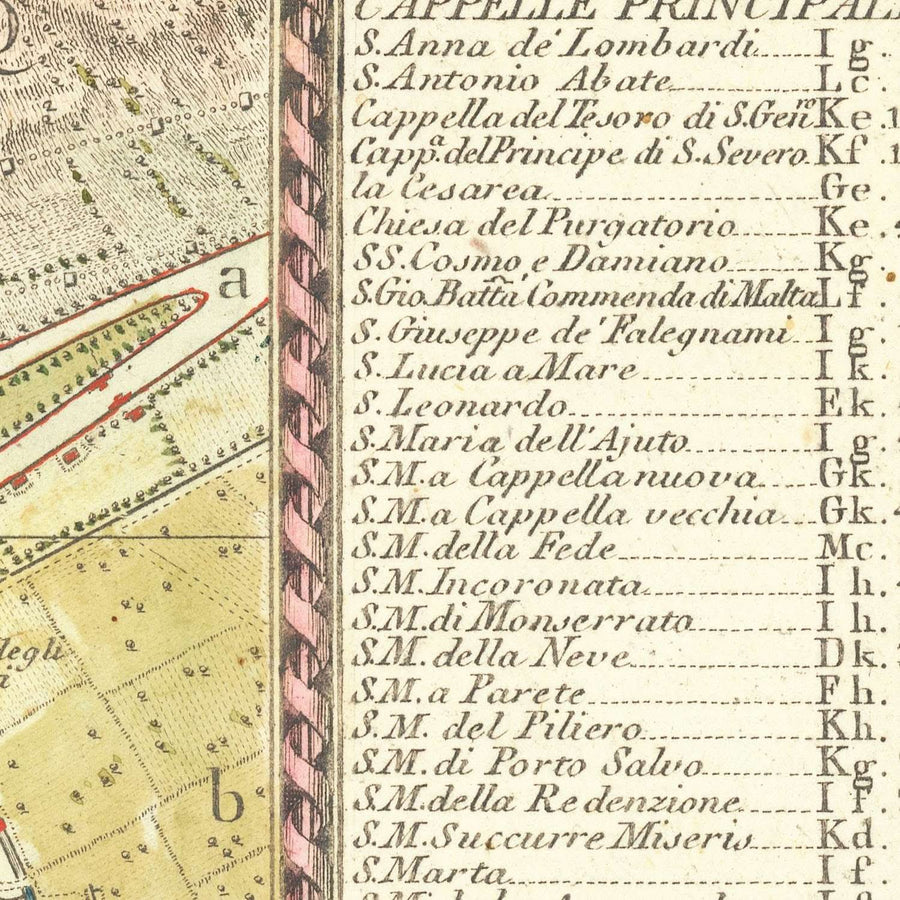 CAPPELLE PRINCIPALI
S. Anna de' Lombardi I g.
S. Antonio Abate L c.
Cappella del Tesoro di S. Gen.ro K e .1
Capp.a del Principe di S. Severo K f .1
la Cesarea G e .
Chiesa del Purgatorio K e .
SS. Cosmo, e Damiano K g .
S. Gio. Batta Commenda di Malta L f .
S. Giuseppe de' Falegnami I g .
S. Lucia a Mare I k .
S. Leonardo E k .
S. Maria dell'Ajuto I g .
S. M. a Cappella nuova G k .
S. M. a Cappella vecchia G k .
S. M. della Fede M c .
S. M. Incoronata I h .
S. M. di Monserrato I h .
S. M. della Neve D k .
S. M. a Parete F h .
S. M. del Piliero K h .
S. M. di Porto Salvo K g .
S. M. della Redenzione I f .
S. M. Succurre Miseris K d .
S. Marta I f .
a
degli
b